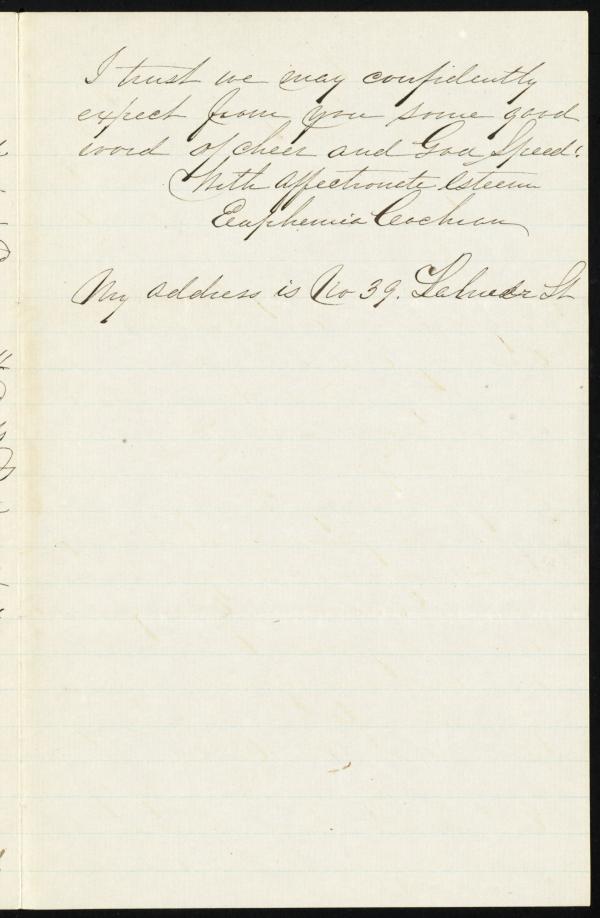 I trust we may confidently
expect from you some good
word of cheer and God Speed!
With affectionate esteem
Euphemia Cochran
My address is No 39. St